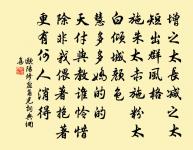 增之太長減之太
短出群風格
施朱太赤施粉太
白傾城顏色
慧多多嬌的的
天付與教誰憐惜
除非我偎著抱著
更有何人消得
歐陽修鹽角兒詞典網
集